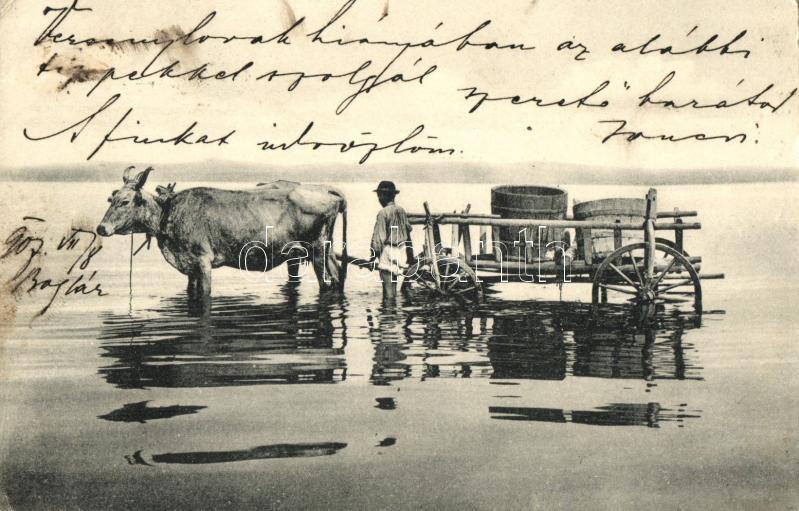 Versenylovak hiányában az alábbi
tinpekkel szolgál szerető barátod
A fiukat üdvözlöm. Jancsi
907. VII/8
Boglár
darabanth